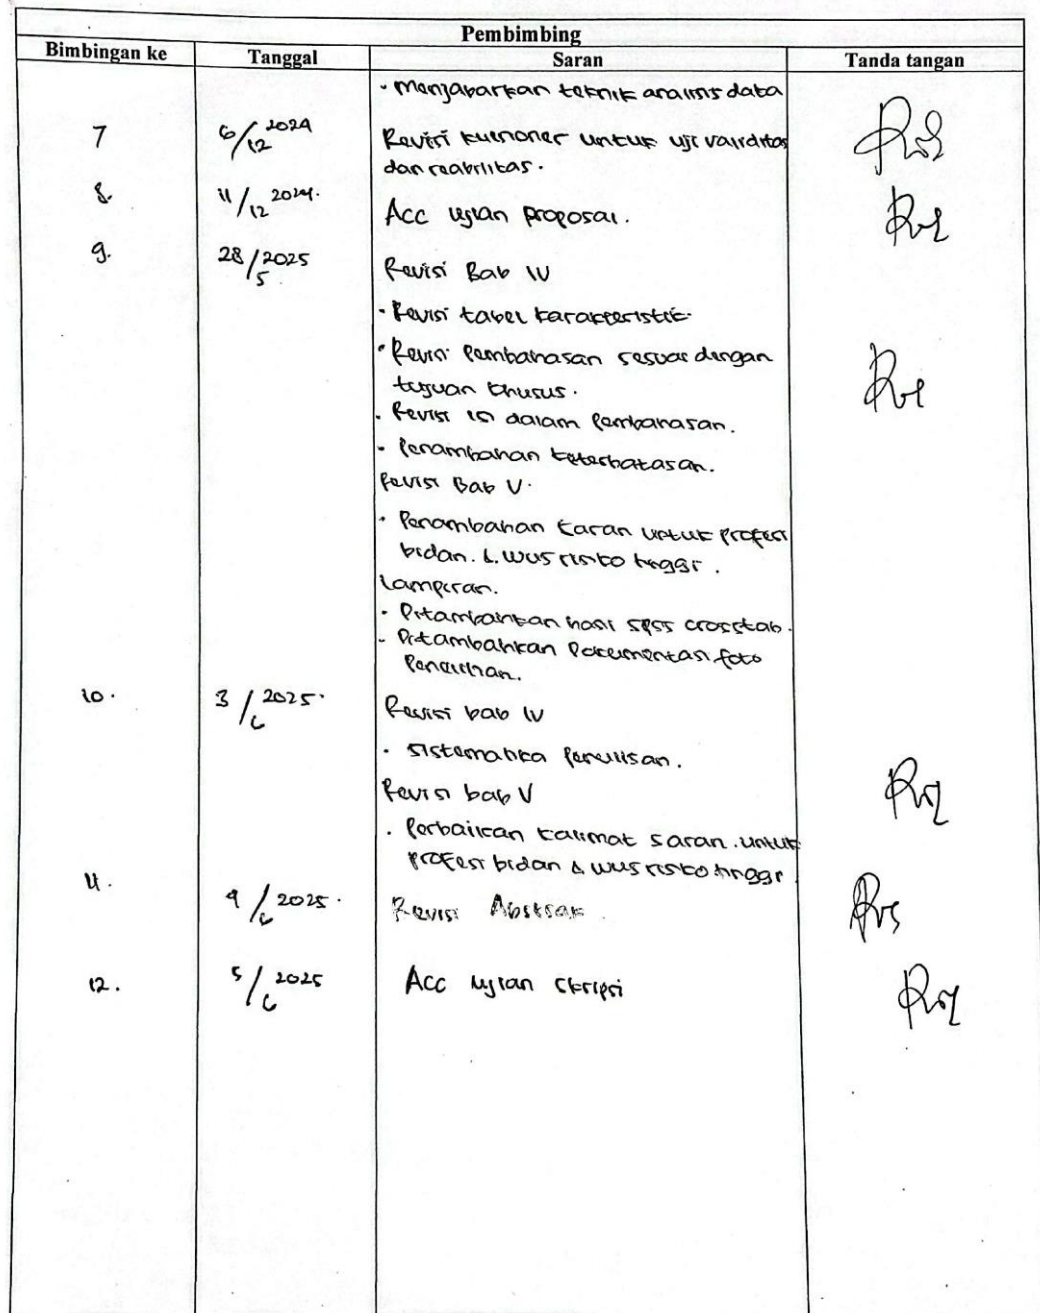 Pembimbing
Bimbingan ke Tanggal Saran Tanda tangan
- Menjabarkan teknik analisis data
7 6/12 2024 Revisi kuesioner untuk uji validitas
dan reabilitas.
8. 11/12 2024. Acc ujian proposal.
9. 28/5 2025 Revisi Bab IV
- Revisi tabel karakteristik.
- Revisi Pembahasan sesuai dengan
tujuan khusus.
- Revisi isi dalam Pembahasan.
- Penambahan keterbatasan.
Revisi Bab V.
- Penambahan saran untuk profesi
bidan. & WUS risiko tinggi.
Lampiran.
- Ditambahkan hasil SPSS crosstab.
- Ditambahkan Dokumentasi foto
Penelitian.
10. 3/6 2025. Revisi bab IV
- Sistematika Penulisan.
Revisi bab V
- Perbaikan kalimat saran. untuk
profesi bidan & wus risiko tinggi
11. 4/6 2025. Revisi Abstrak.
12. 5/6 2025 Acc ujian skripsi